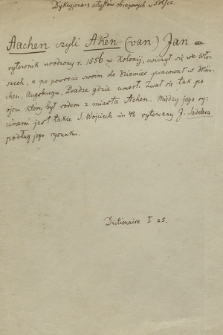 Dykcyonarz artystów obcych w Polsce
Aachen czyli Aken (van) Jan
rytownik urodzony r. 1556 w Kolonij, uczył się we Wło-
szech, a po powrocie swoim do Niemiec pracował w Mon-
chu, Augsburgu, Pradze gdzie umarł. Zwał się tak po
ojcu który był rodem z miasta Aachen. Między jego ry-
cinami jest także S. Wojciech in 4º rytowany J. Sadelera
podług jego rysunku.
Dictionaire I 25.